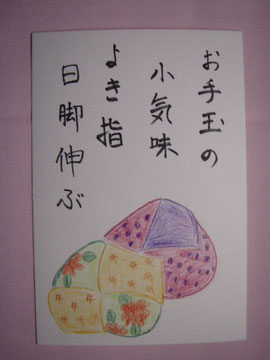 お手玉の
小気味
よき指
日脚伸ぶ